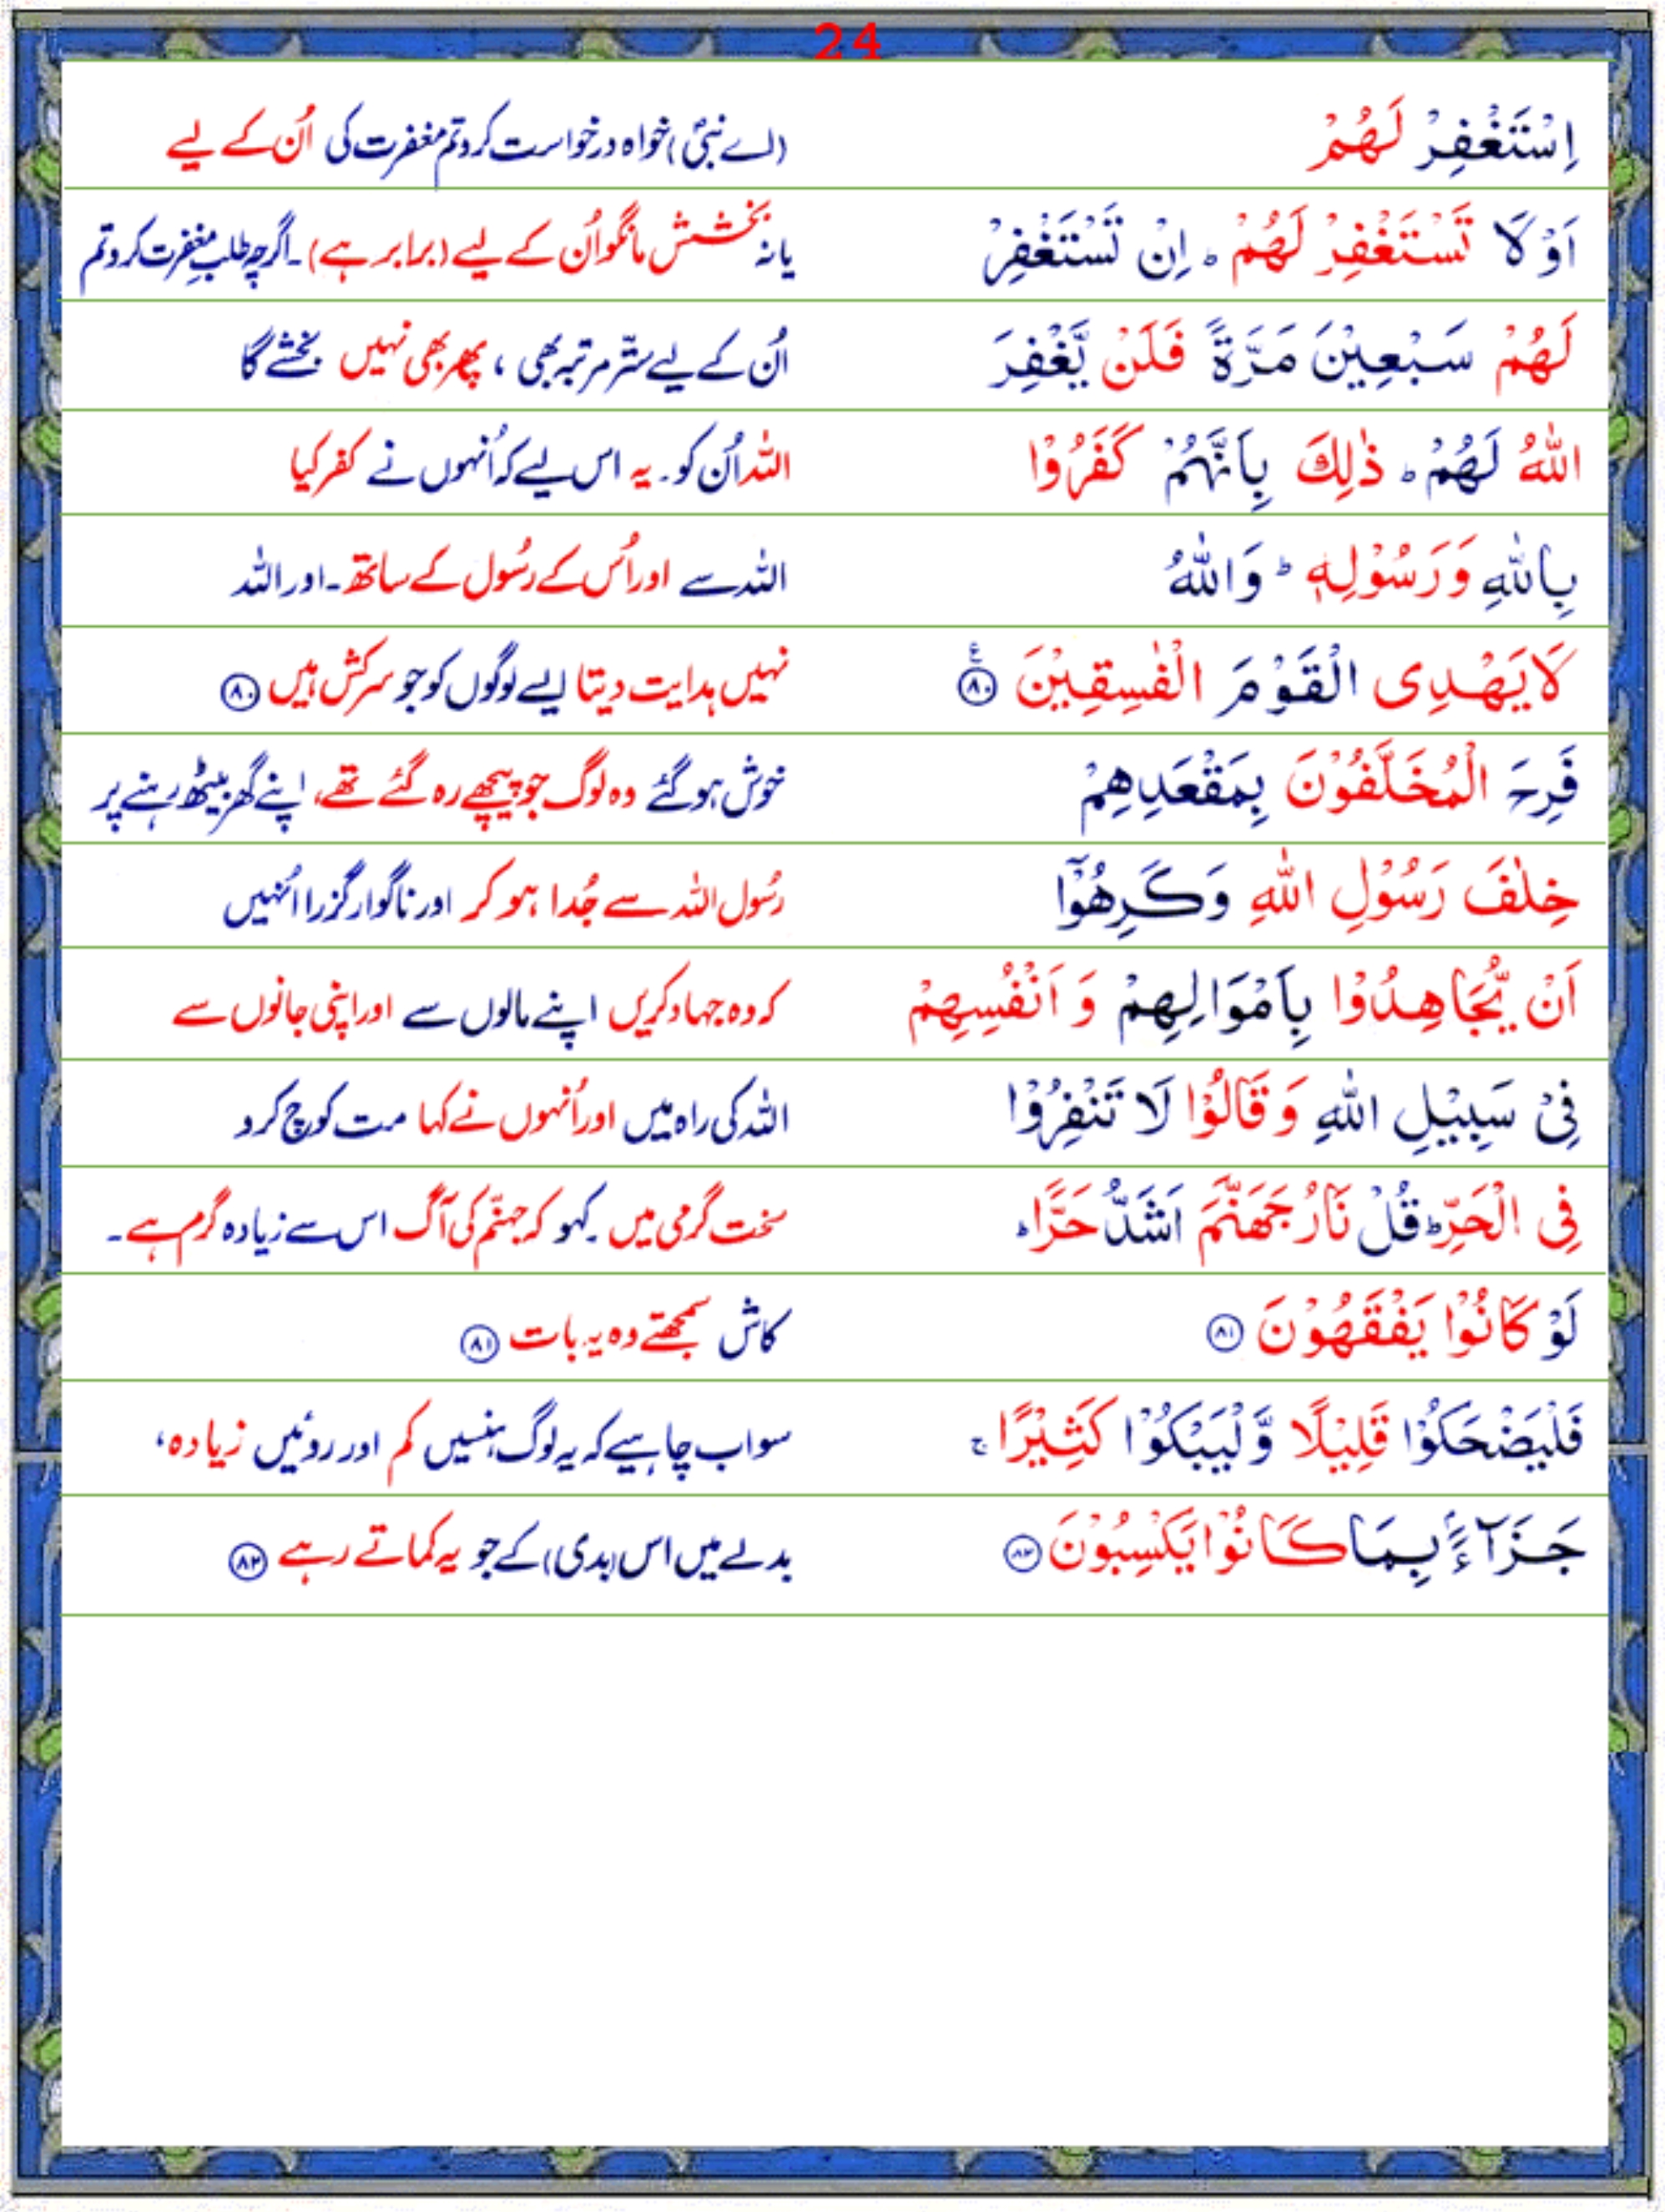 24
اِسْتَغْفِرْ لَهُمْ (اے نبیؐ) خواہ درخواست کرو تم مغفرت کی اُن کے لیے
اَوْ لَا تَسْتَغْفِرْ لَهُمْ ؕ اِنْ تَسْتَغْفِرْ یا نہ بخشش مانگو اُن کے لیے (برابر ہے)۔ اگرچہ طلبِ مغفرت کرو تم
لَهُمْ سَبْعِيْنَ مَرَّةً فَلَنْ يَّغْفِرَ اُن کے لیے ستّر مرتبہ بھی ، پھر بھی نہیں بخشے گا
اللّٰهُ لَهُمْ ؕ ذٰلِكَ بِاَنَّهُمْ كَفَرُوْا اللہ اُن کو۔ یہ اس لیے کہ اُنہوں نے کفر کیا
بِاللّٰهِ وَرَسُوْلِهٖ ؕ وَاللّٰهُ اللہ سے اور اُس کے رسُول کے ساتھ۔ اور اللہ
لَا يَهْدِى الْقَوْمَ الْفٰسِقِيْنَ ۸۰ ع نہیں ہدایت دیتا ایسے لوگوں کو جو سرکش ہیں ۸۰
فَرِحَ الْمُخَلَّفُوْنَ بِمَقْعَدِهِمْ خوش ہو گئے وہ لوگ جو پیچھے رہ گئے تھے، اپنے گھر بیٹھ رہنے پر
خِلٰفَ رَسُوْلِ اللّٰهِ وَكَرِهُوْۤا رسُول اللہ سے جُدا ہو کر اور ناگوار گزرا اُنہیں
اَنْ يُّجَاهِدُوْا بِاَمْوَالِهِمْ وَ اَنْفُسِهِمْ کہ وہ جہاد کریں اپنے مالوں سے اور اپنی جانوں سے
فِىْ سَبِيْلِ اللّٰهِ وَ قَالُوْا لَا تَنْفِرُوْا اللہ کی راہ میں اور اُنہوں نے کہا مت کوچ کرو
فِى الْحَرِّ ؕ قُلْ نَارُ جَهَنَّمَ اَشَدُّ حَرًّا ؕ سخت گرمی میں۔ کہو کہ جہنّم کی آگ اس سے زیادہ گرم ہے۔
لَوْ كَانُوْا يَفْقَهُوْنَ ۸۱ کاش سمجھتے وہ یہ بات ۸۱
فَلْيَضْحَكُوْا قَلِيْلًا وَّلْيَبْكُوْا كَثِيْرًا ۚ سو اب چاہیے کہ یہ لوگ ہنسیں کم اور روئیں زیادہ،
جَزَآءًۢ بِمَا كَانُوْا يَكْسِبُوْنَ ۸۲ بدلے میں اس (بدی) کے جو یہ کماتے رہے ۸۲